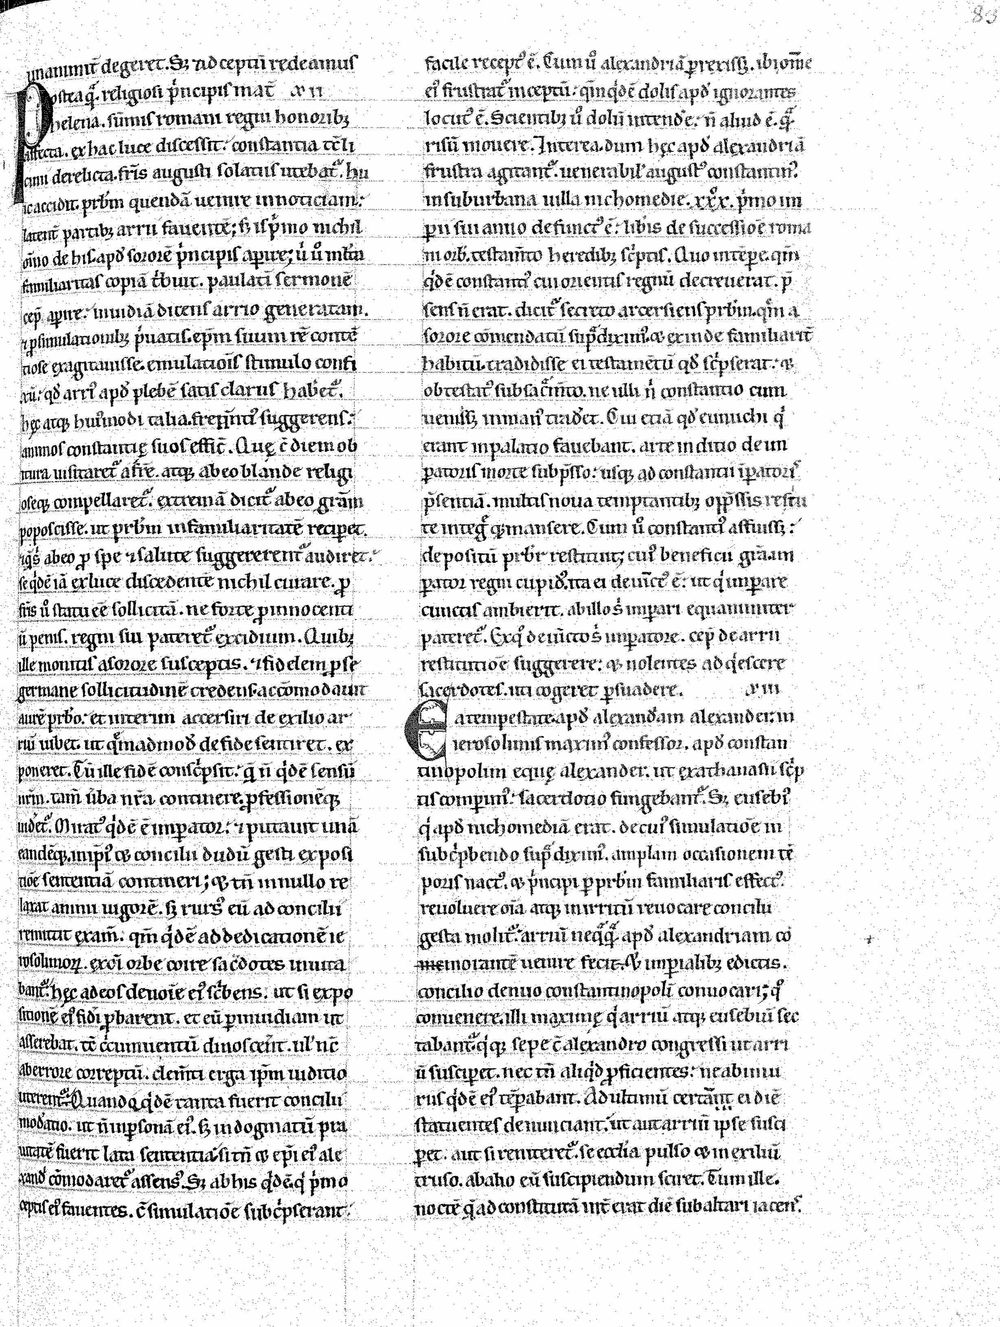 83
unanimit degeret. Sꝫ ad ceptū redeamus
Postea q̄. religiosi p̄ncipis mat̄ xii
helena. sūmis romani regni honoribꝫ
affecta. ex hac luce discessit: constantia
cinii derelicta. fr̄is augusti solatiis utebat᷑. hu
ic accidit. prb̄m quendā uenire in noticiam:
latent̄ partibꝫ arrii fauentē; sꝫ is p̄mo nichil
om̄io de his. apđ sororē p̄ncipis aperire; ū
familiaritas copiā t̄buit. paulatī sermonē
cep̄ aperire: inuidiā dicens arrio generatam.
⁊ p simulationibꝫ p̄uatis. ep̄m suum rē contē
tiose exagitauisse. emulatiōis stimulo confi
qđ arri᷒ apđ plebē satis clarus haberet᷑.
hęc atqꝫ hui᷒modi talia. suggerens:
animos constantię suos effic̄. Quę c̄ diem ob
itura uisitaret᷑ a fr̄e. atqꝫ ab eo blande religi
oseqꝫ compellaret᷑. extremā dicit᷑ ab eo gr̄am
poposcisse. ut prb̄m in familiaritatē reciperet.
ab eo ꝓ spe ⁊ salute suggererent᷑ audiret.
se q̄dē iā ex luce discedente nichil curare. ꝓ
fr̄is ū statu eē sollicitā. ne forte ꝓ innocenti
ū penis. regni sui pateret᷑ excidium. Quibꝫ
ille monitis a sorore susceptis. ⁊ fidelem ꝓ se
germane sollicitudinē credens. accōmodauit
aurē prb̄o. et interim accersiri de exilio ar
riū iubet. ut quēadmođ de fide sentiret. ex
poneret. Tū ille fidē conscp̄sit: q̄ n̄ q̄dē sensū
nr̄m. tam̄ uba nr̄a continere. ꝓfessionēqꝫ
uideret᷑. Mirat᷒ q̄dē ē imperator: ⁊ putauit unā
eandēqꝫ. in ip̄i᷒ & concilii dudū gesti exposi
tiōe sententiā contineri; & tn̄ in nullo re
laxat animi uigorē. sꝫ rurs᷒ eū ad concilii
remittit exam̄. qm̄ q̄dē ad dedicationē ie
rosolimoꝝ. ex om̄i orbe coire sac̄dotes inuita
bant᷑. hęc ad eos de noīe ei᷒ sc̄bens. ut si expo
sitionē ei᷒ fidī ꝓbarent. et eū ꝑ inuidiam ut
asserebat. tē c̄cumuentū dinoscer̄it. ul᷑ n̄c
ab errore correptū. clem̄ti erga ip̄m iuditio
uterent᷑. Quando q̄dē tanta fuerit concilii
mod̄atio. ut n̄ in personā ei᷒. sꝫ in dogmatū pra
uitatē fuerit lata sententia. si tn̄ & ep̄i ei᷒ ale
xandri cōmodaret᷑ assens᷒. Sꝫ ab his q̄dē. q̄ p̄mo
ceptis ei᷒ fauentes. c̄ simulatiōe subc̄pserant:
facile recept᷒ ē. Cum ū alexandriā ꝑrexissꝫ. ibi om̄e
ei᷒ frustrat᷒ inceptū: qm̄ q̄dē dolis apđ ignorantes
locus ē. Scientibꝫ ū dolū intend̄e: n̄ aliud ē. q̄
risū mouere. Interea. dum hęc apđ alexandriā
frustra agitant᷑. uenerabil᷒ august᷒ constantin᷒.
in suburbana uilla nichomedie. xxx. p̄mo im
perii sui anno defunct᷒ ē: libris de successiōe romani
orb᷒. testam̄to heredibꝫ sc̄ptis. Quo in tempe. qm̄
q̄dē constanti᷒ cui orientis regnū decreuerat. p̄
sens n̄ erat. dicit᷑ secreto arcersiens prb̄m. quē a
sorore cōmendatū sup̄ diximus. & exinde familiarit̄
habitū. tradidisse ei testamentū qđ sc̄pserat: &
obtestat᷒ sub sac̄m̄to. ne ulli n̄ constantio cum
uenissꝫ in man᷒ trađet. Cui etiā qđ eunuchi q̄
erant in palatio fauebant. arte inditio de im
peratoris morte subpresso: usqꝫ ad constantii īperatoris
p̄sentiā. multis noua temptantibꝫ opp̄ssis restite
te integrę permansere. Cum ū constanti᷒ affuissꝫ:
depositū prb̄r restituit; cui᷒ beneficii gr̄am
perator regni cupid᷒. ita ei deuinct᷒ ē: ut q̄ imperare
cunctis ambierit. ab illo s̄ imperari equanimiter
pateret᷑. Ex q̄ deuincto s̄ imperatore. cep̄ de arrii
restitutiōe suggerere: & nolentes adq̄escere
sacerdotes. uti cogeret persuadere. xiii
Ea tempestate. apđ alexandriam alexander: in
ierosolimis maxim᷒ confessor. apđ constan
tinopolim eque alexander. ut ex athanasii sc̄p
tis comperim᷒: sacerdotio fungebant᷑. Sꝫ eusebi᷒
q̄ apđ nichomediā erat. de cui᷒ simulatiōe in
subc̄pbendo sup̄ dixim᷒. amplam occasionem tē
poris nact᷒. & p̄ncipi ꝑ prb̄m familiaris effect᷒.
reuoluere oīa. atqꝫ in irritū reuocare concilii
gesta molit᷑: arriū neq̄q̄. apđ alexandriam cō
morantē uenire fecit. & imperialibꝫ edictis.
concilio denuo constantinopolī conuocari; q̄
conuenere. illi maxime q̄ arriū atqꝫ eusebiū sec
tabant᷑. q̄ qꝫ sepe c̄ alexandro congressi ut arri
ū susciperet. nec tn̄ aliq̄đ ꝓficientes: ne ab iniu
riis q̄dē ei᷒ tēperabant. Ad ultimū certā ei diē
statuentes denunciant. ut aut arriū ip̄se susci
peret. aut si reniteret᷑. se ecclīa pulso & in exiliū
truso. ab alio eū suscipiendum sciret. Tum ille.
noctē q̄ ad constitutā int̄erat diē sub altari iacens.